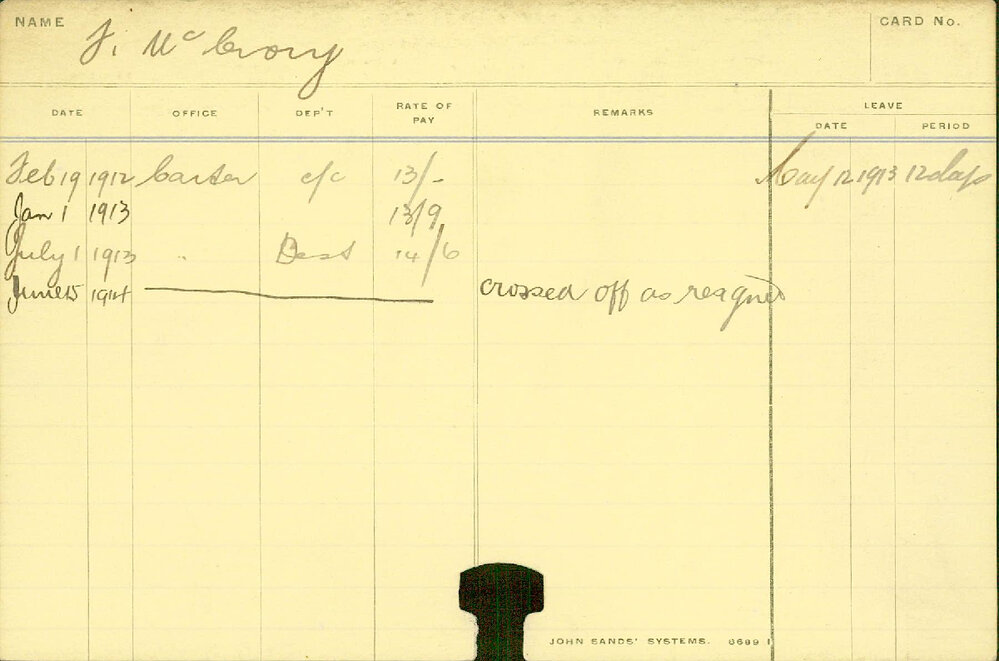 NAME F. McCrory CARD No.
LEAVE
DATE OFFICE DEP'T RATE OF PAY REMARKS DATE PERIOD
Feb 19 1912 Carter c/c 13/- May 12 1913 12 days
Jan 1 1913 13/9
July 1 1913 " Dest 14/6
June 15 1914 crossed off as resigned
JOHN SANDS' SYSTEMS. 6689